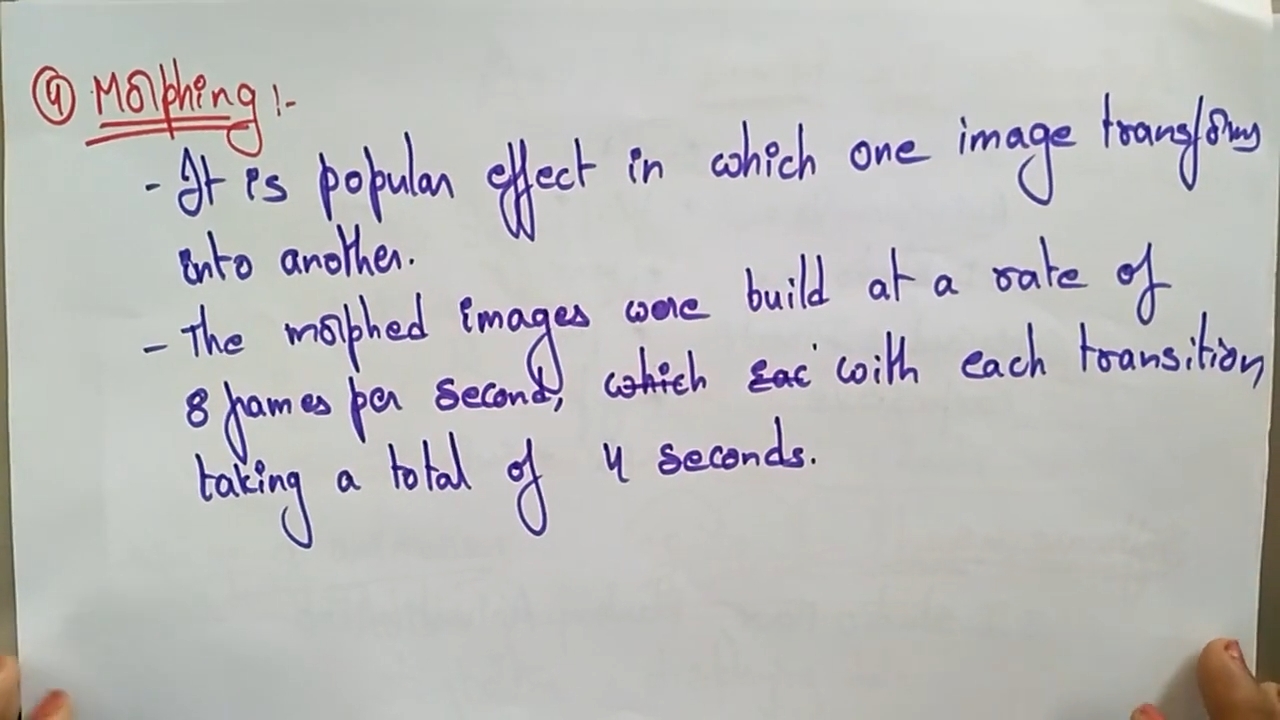 ④ Morphing :-
- It is popular effect in which one image transforms
into another.
- The morphed images were build at a rate of
8 frames per second, which eac with each transition
taking a total of 4 seconds.